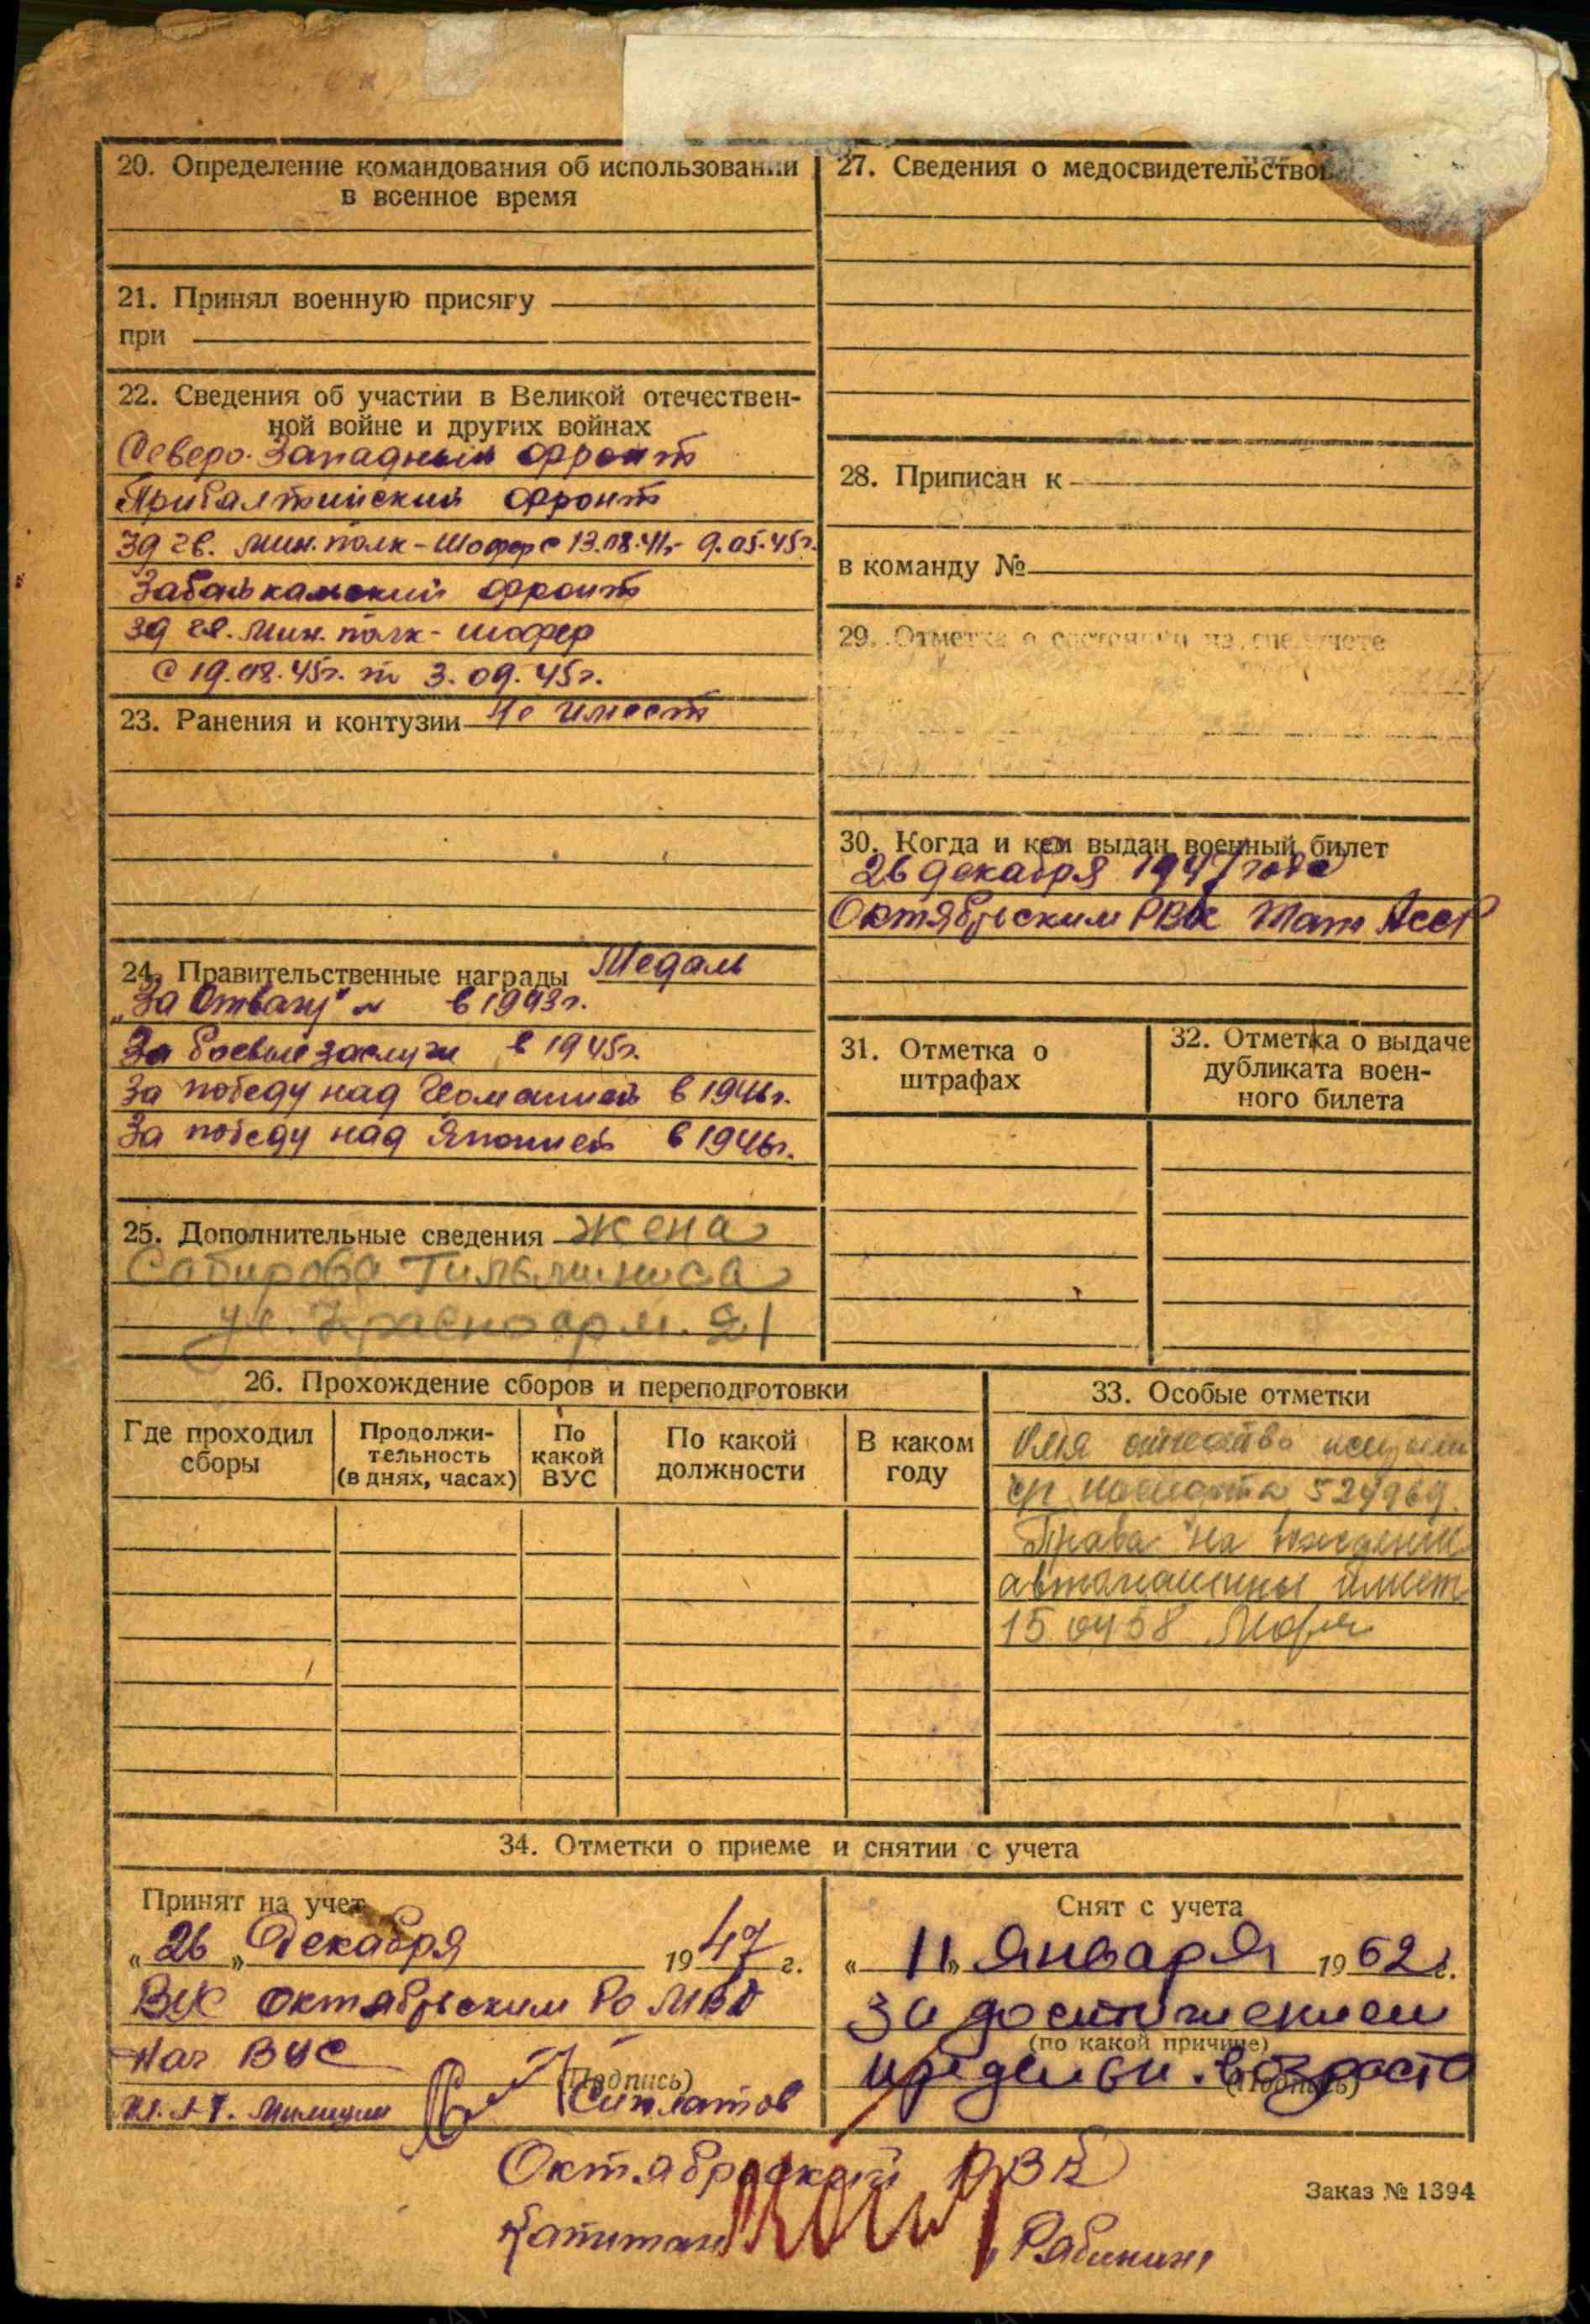 20. Определение командования об использовании
в военное время
21. Принял военную присягу
при
22. Сведения об участии в Великой отечествен-
ной войне и других войнах
Северо-Западный фронт
Прибалтийский фронт
39 гв. мин. полк - шофер с 13.08.41г- 9.05.45г.
Забайкальский фронт
39 гв. мин. полк - шофер
с 19.08.45г. по 3.09.45г.
23. Ранения и контузии Не имеет
24. Правительственные награды Медаль
„За Отвагу" в 1943г.
За боевые заслуги в 1945г.
За победу над Германией в 1946г.
За победу над Японией в 1946г.
25. Дополнительные сведения жена
Сабирова
ул. Красноарм. 21
26. Прохождение сборов и переподготовки
Где проходил
сборы
Продолжи-
тельность
(в днях, часах)
По
какой
ВУС
По какой
должности
В каком
году
27. Сведения о медосвидетельство
28. Приписан к
в команду №
29. Отметка о состоянии на спецучете
30. Когда и кем выдан военный билет
26 декабря 1947 года
Октябрьским РВК Тат АССР
31. Отметка о
штрафах
32. Отметка о выдаче
дубликата воен-
ного билета
33. Особые отметки
Имя отчество
паспорта 527969.
Права на вождение
автомашины имеет
15 04 58
34. Отметки о приеме и снятии с учета
Принят на учет
„26" Декабря 1947 г.
ВУС Октябрьским Ро МВД
Нач ВУС
(Подпись)
милиции
Снят с учета
« 11 » Января 1962 г.
За достижением
(по какой причине)
предельн. возраста
(Подпись)
Октябрьский РВК
Капитан „Рябинин"
Заказ № 1394